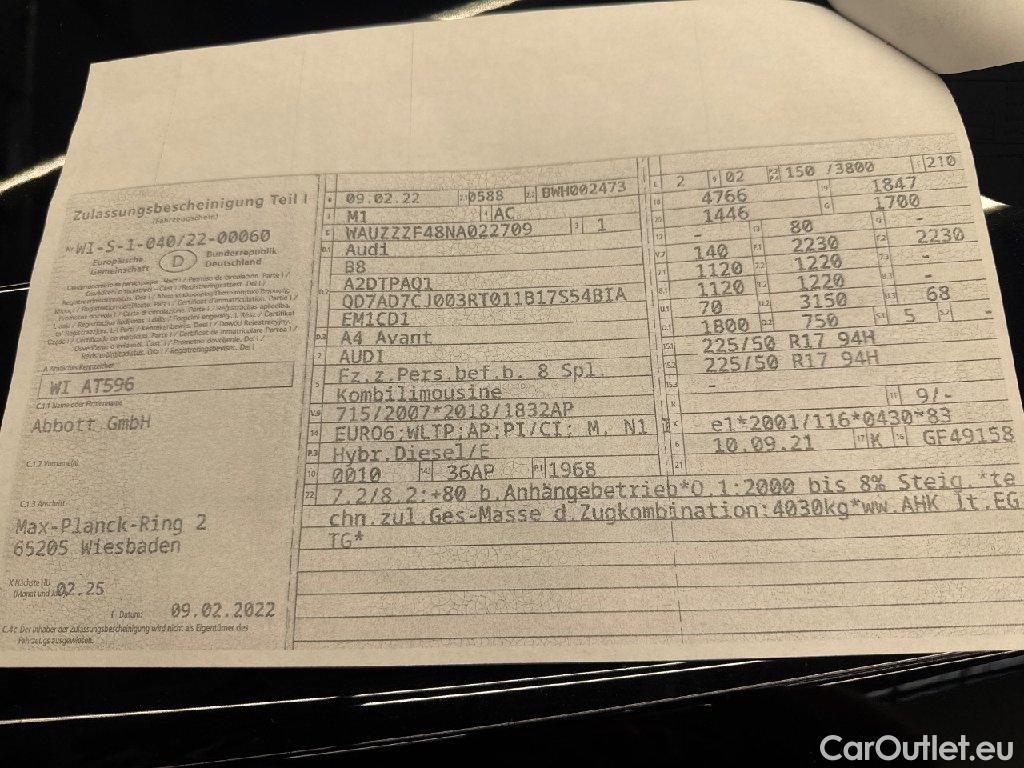 Zulassungsbescheinigung Teil I
(Fahrzeugschein)
Nr. WI-S-1-040/22-00060
Europäische Gemeinschaft D Bundesrepublik Deutschland
WI AT596
C.1.1 Name oder Firmenname
Abbott GmbH
C.1.2 Vorname(n)
C.1.3 Anschrift
Max-Planck-Ring 2
65205 Wiesbaden
02.25
(Monat und Jahr)
I Datum: 09.02.2022
C.4c Der Inhaber der Zulassungsbescheinigung wird nicht als Eigentümer des
Fahrzeugs ausgewiesen.
09.02.22 0588 BWH002473
M1 AC
WAUZZZF48NA022709 3 1
D.1 Audi
B8
A2DTPAQ1
QD7AD7CJ003RT011B17S54BIA
EM1CD1
D.3 A4 Avant
2 AUDI
5 Fz.z.Pers.bef.b. 8 Spl.
Kombilimousine
V.9 715/2007*2018/1832AP
14 EURO6;WLTP;AP;PI/CI; M, N1
P.3 Hybr.Diesel/E
10 0010 36AP P.1 1968
L 2 9 02 150 /3800 210
18 4766 19 1847
20 1446 G 1700
12 - 13 80 -
V.7 140 F.1 2230 F.2 2230
7.1 1120 7.2 1220 7.3 -
8.1 1120 8.2 1220 8.3 -
U.1 70 U.2 3150 U.3 68
O.1 1800 O.2 750 S.1 5 S.2 -
15.1 225/50 R17 94H
15.2 225/50 R17 94H
15.3 -
R 11 9/-
K e1*2001/116*0430*83
6 10.09.21 17 K 16 GF49158
21
22 7.2/8.2:+80 b.Anhängebetrieb*O.1:2000 bis 8% Steig.*te
chn.zul.Ges-Masse d.Zugkombination:4030kg*ww.AHK lt.EG
TG*
CarOutlet.eu